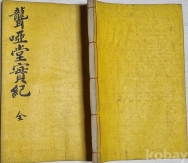 聾啞堂實紀
全
kobay